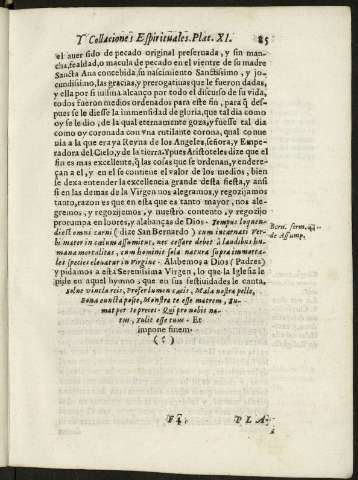 Y Collaciones Espirituales. Plat. XI. 85
el auer sido de pecado original preseruada, y sin man-
cha, fealdad, o macula de pecado en el vientre de su madre
Sancta Ana concebida, su nascimiento Sanctissimo, y jo-
cundissimo, las gracias, y prerogatiuas que le fueron dadas,
y ella por si misma alcanço por todo el discurso de su vida,
todos fueron medios ordenados para este fin, para q̃ des-
pues se le diesse la immensidad de gloria, que tal dia como
oy se le dio, de la qual eternamente goza, y fuesse tal dia
como oy coronada con vna rutilante corona, qual conue
nia a la que era ya Reyna de los Angeles, señora, y Empe-
radora del Cielo, y de la tierra. Y pues Aristoteles dize que el
fin es mas excellente, q̃ las cosas que se ordenan, y endere-
çan a el, y en el se contiene el valor de los medios, bien
se dexa entender la excellencia grande desta fiesta, y ansi
si en las demas de la Virgen nos alegramos, y regozijamos
tanto, razon es que en esta que es tanto mayor, nos ale-
gremos, y regozijemos, y nuestro contento, y regozijo
prorumpa en loores, y alabanças de Dios. Tempus loquen-
di est omni carni (dize San Bernardo) cum incarnati Ver-
bi mater in cælum assumitur, nec cessare debet à laudibus hu-
mana mortalitas, cum hominis sola natura supra immorta-
les species eleuatur in Virgine. Alabemos a Dios (Padres)
y pidamos a esta Serenissima Virgen, lo que la Iglesia le
pide en aquel hymno, que en sus festiuidades le canta,
Solue vincla reis, Profer lumen cæcis, Mala nostra pelle,
Bona cuncta posce, Monstra te esse matrem, Su-
mat per te preces. Qui pro nobis na-
tus, Tulit esse tuus. Et
impone finem.
(:)
Bern. serm. 4.
de Assump.
F4 PLA-